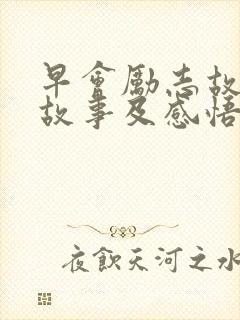 早會勵志故
故事及感悟
夜飲天河之水